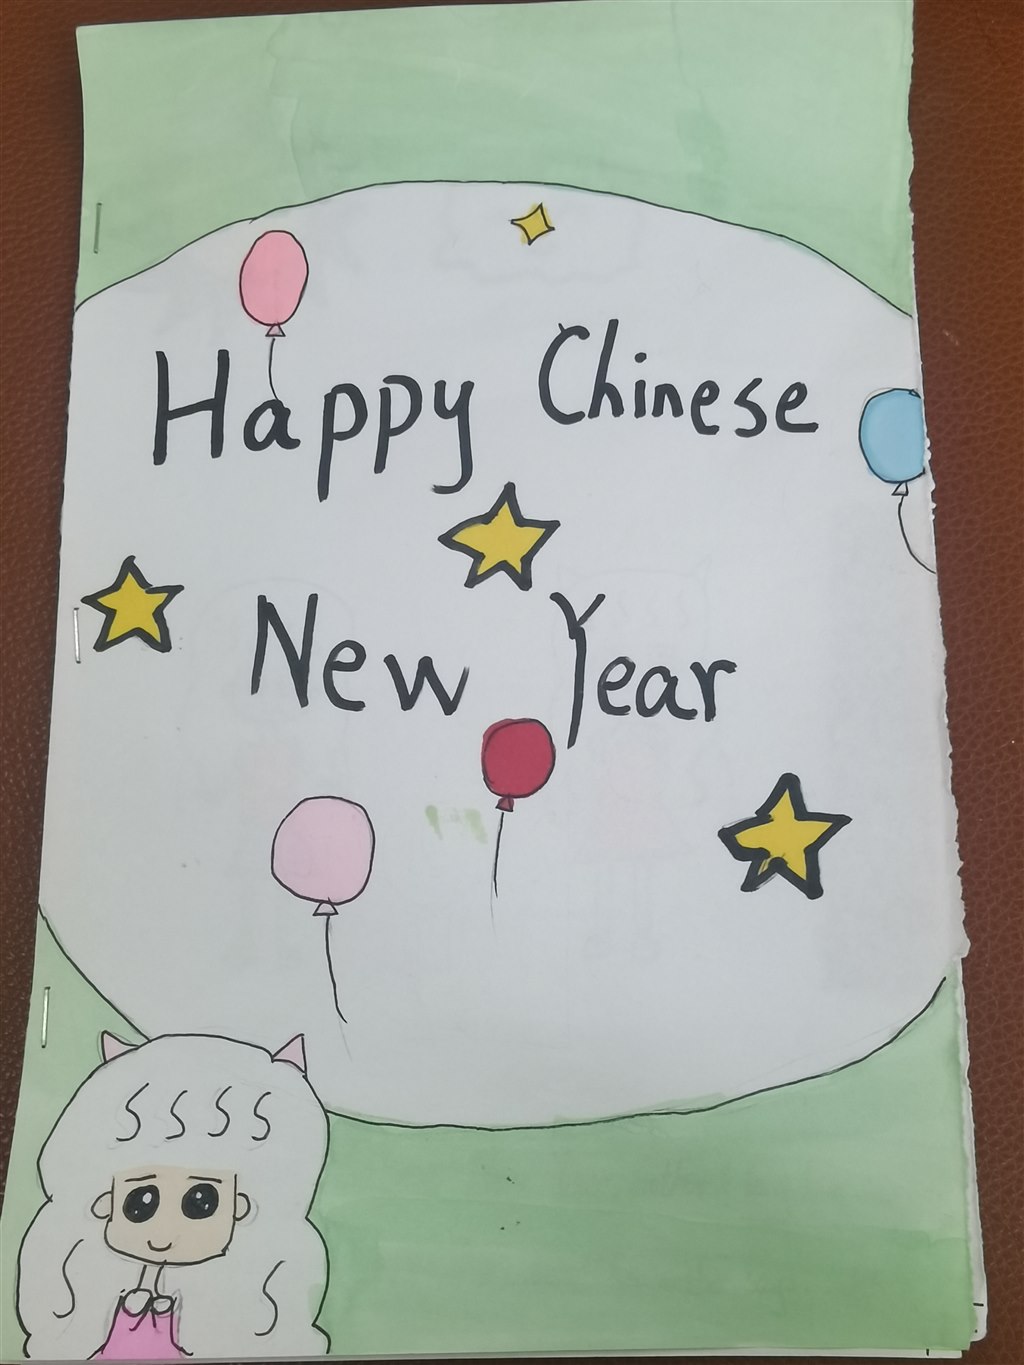 Happy Chinese
New Year